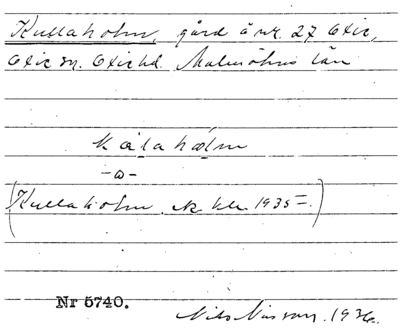 Kullaholm, gård å nr. 27 Oxie,
Oxie sn. Oxie hd. Malmöhus län
kɑ̊laholm
-ɷ-
(Kullaholm. 1935 -)
Nr 5740.
Nils Nilsson. 1936.